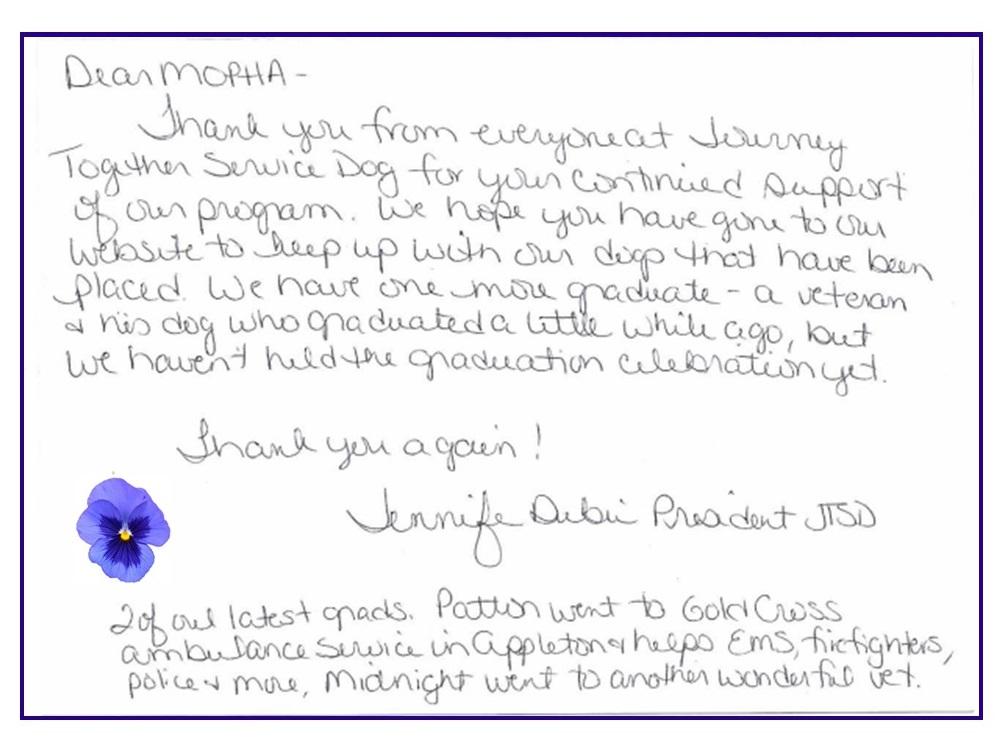 Dear MOPHA -
Thank you from everyone at Journey
Together Service Dog for your continued support
of our program. We hope you have gone to our
website to keep up with our dogs that have been
placed. We have one more graduate - a veteran
& his dog who graduated a little while ago, but
we haven't held the graduation celebration yet.
Thank you again!
Jennife President JTSD
2 of our latest grads. Patton went to Gold Cross
ambulance service in Appleton & helps EMS, firefighters,
police & more, Midnight went to another wonderful vet.